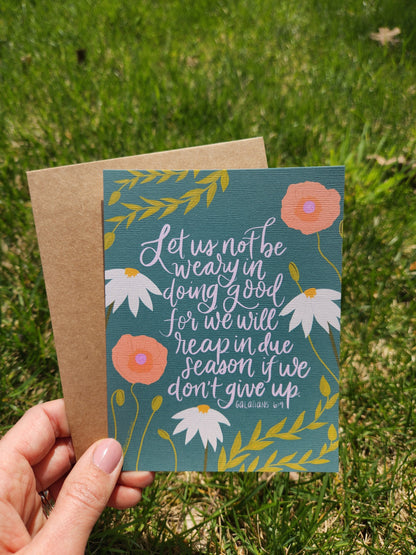 Let us not be
weary in
doing good
for we will
reap in due
season if we
don't give up.
GALATIANS 6:9